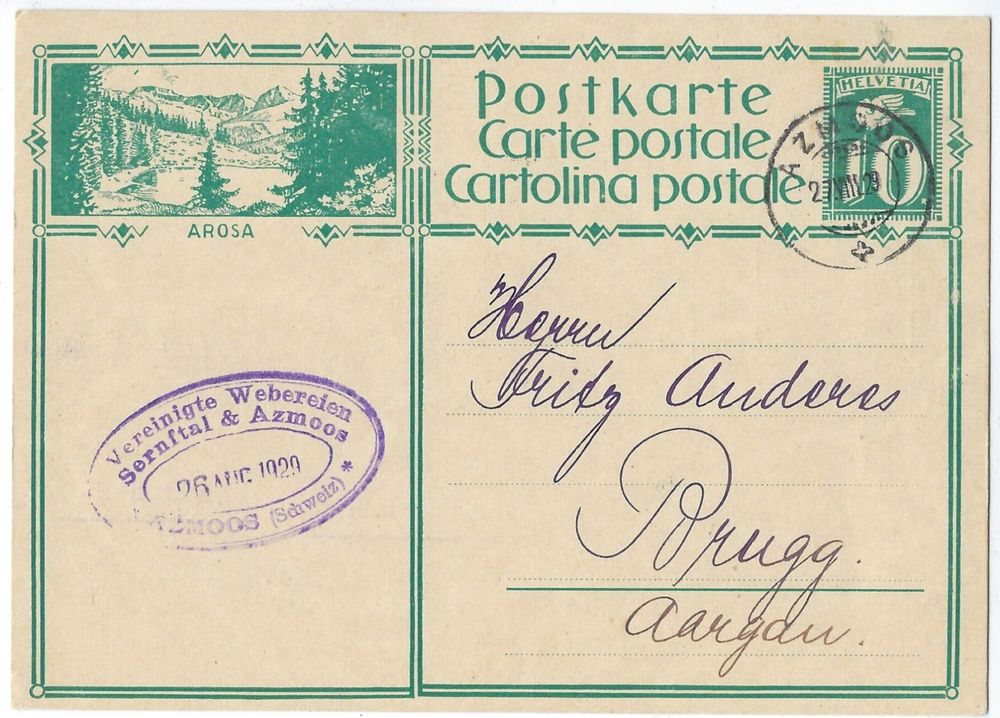 Postkarte
Carte postale
Cartolina postale
HELVETIA
10
AZMOOS
VIII.29
AROSA
Herrn
Fritz Anderes
Brugg.
Aargau.
Vereinigte Webereien
Sernftal & Azmoos
26 AUG. 1929
AZMOOS (Schweiz) *